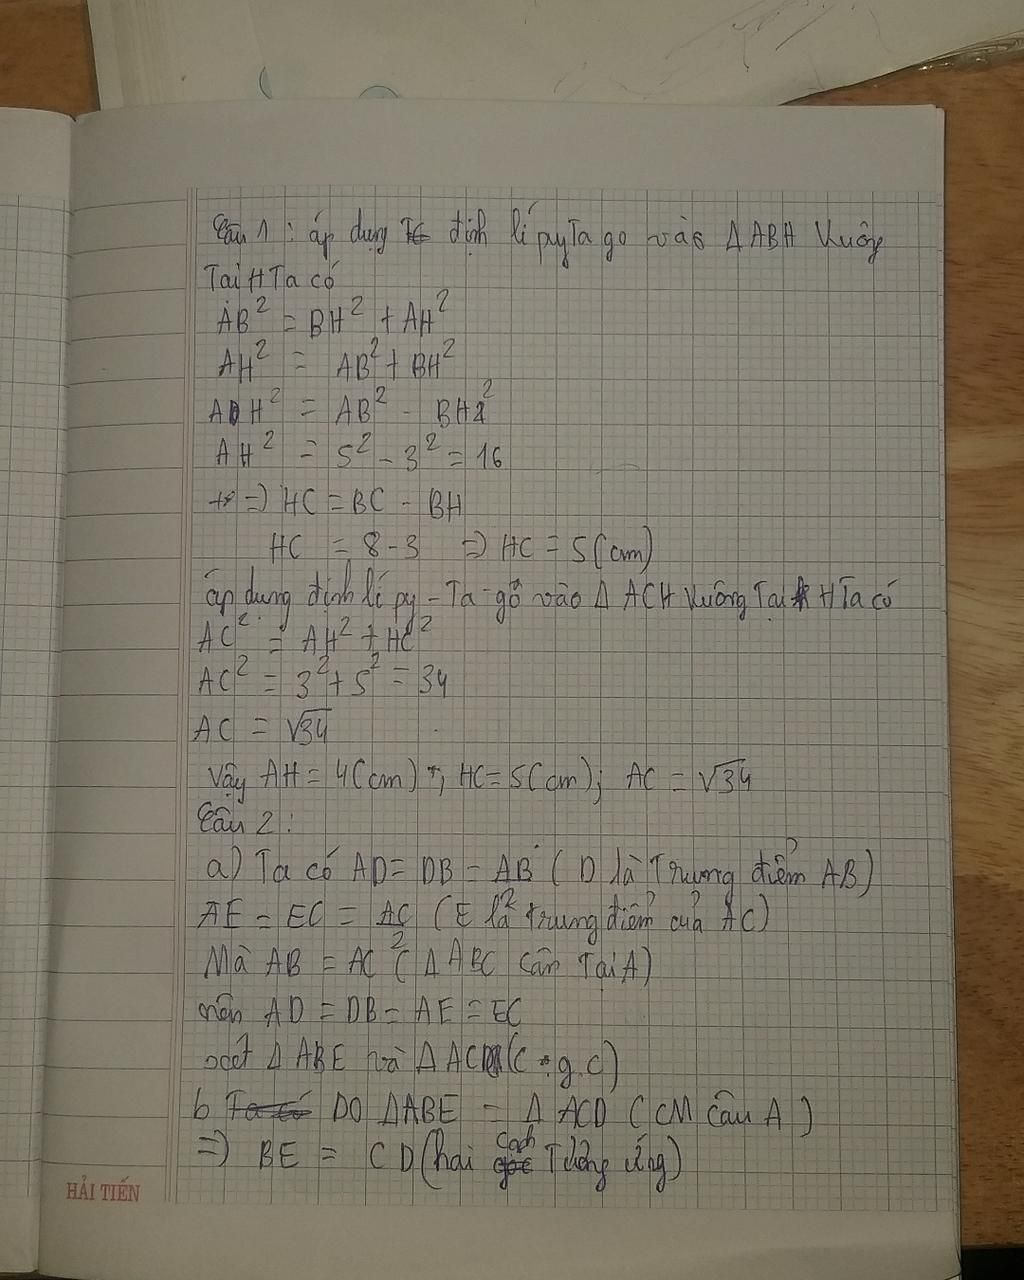 Câu 1 : áp dụng định lí pyTa go vào Δ ABH Vuông
Tại H Ta có
AB² = BH² + AH²
AH² = AB² + BH²
AH² = AB² - BH²
AH² = 5² - 3² = 16
=> HC = BC - BH
HC = 8 - 3 => HC = 5(cm)
áp dụng định lí py - Ta - gô vào Δ ACH Vuông Tại H Ta có
AC² = AH² + HC²
AC² = 3² + 5² = 34
AC = √34
Vậy AH = 4(cm) ; HC = 5(cm) ; AC = √34
Câu 2 :
a) Ta có AD = DB = AB (D là Trung điểm AB)
AE = EC = AC/2 (E là trung điểm của AC)
Mà AB = AC (Δ ABC cân Tại A)
nên AD = DB = AE = EC
xét Δ ABE và Δ ACD (c . g . c)
b DO ΔABE = Δ ACD (CM Câu A)
=> BE = CD (hai cạnh Tương ứng)
HẢI TIẾN